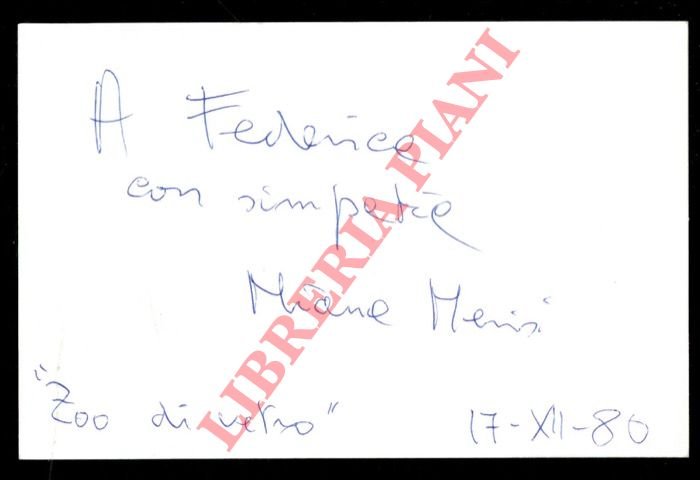 A Federica
con simpatia
Miana Merisi
"Zoo di vetro"
17-XII-80
LIBRERIA PIANI